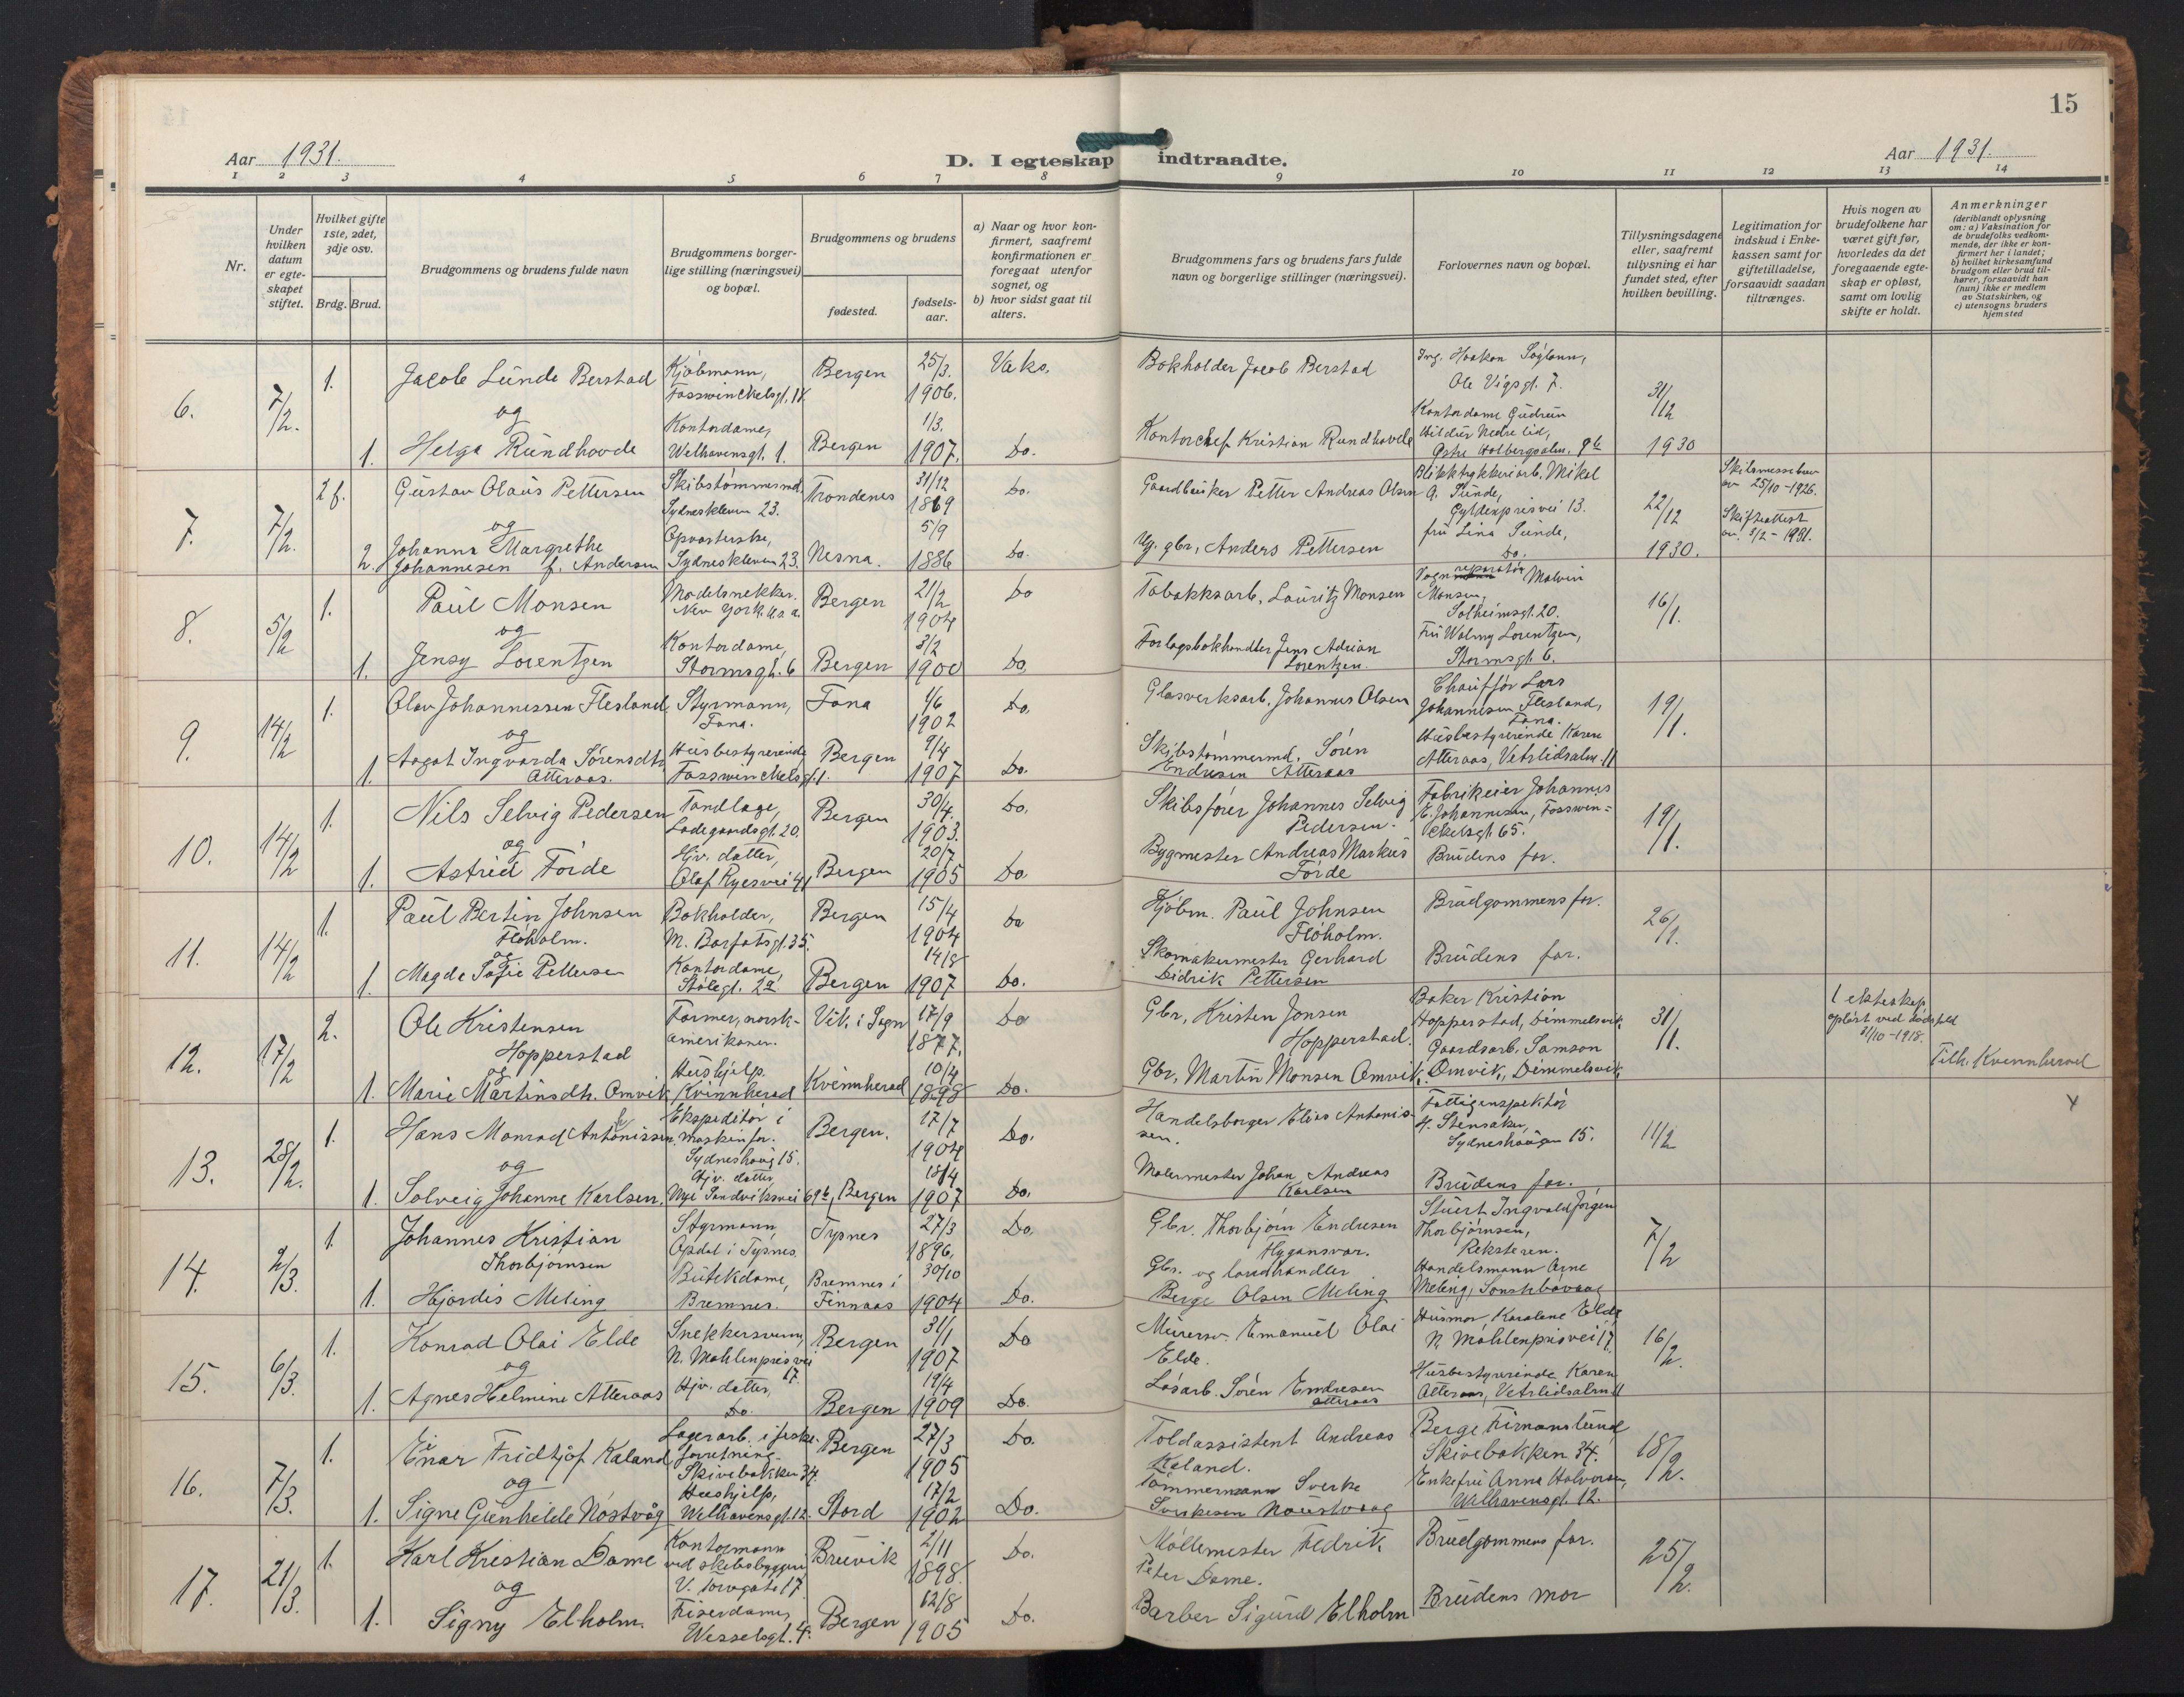 15
Aar 1931.
D. I egteskap indtraadte.
Aar 1931.
1 2 3 4 5 6 7 8 9 10 11 12 13 14
Nr.
Under hvilken datum er egteskapet stiftet.
Hvilket gifte 1ste, 2det, 3dje osv.
Brdg. Brud.
Brudgommens og brudens fulde navn
Brudgommens borgerlige stilling (næringsvei) og bopæl.
Brudgommens og brudens
fødested.
fødselsaar.
a) Naar og hvor konfirmert, saafremt konfirmationen er foregaat utenfor sognet, og
b) hvor sidst gaat til alters.
Brudgommens fars og brudens fars fulde navn og borgerlige stillinger (næringsvei).
Forlovernes navn og bopæl.
Tillysningsdagene eller, saafremt tillysning ei har fundet sted, efter hvilken bevilling.
Legitimation for indskud i Enkekassen samt for giftetilladelse, forsaavidt saadan tiltrænges.
Hvis nogen av brudefolkene har været gift før, hvorledes da det foregaaende egteskap er opløst, samt om lovlig skifte er holdt.
Anmerkninger
(deriblandt oplysning om: a) Vaksination for de brudefolks vedkommende, der ikke er konfirmert her i landet; b) hvilket kirkesamfund brudgom eller brud tilhører, forsaavidt han (hun) ikke er medlem av Statskirken, og c) utensogns bruders hjemsted
6. 7/2. 1. Jacob Lunde Berstad Kjøbmann, Fosswinckelsgt. 18. Bergen 25/3. 1906. Vaks. Bokholder Jacob Berstad Ing. Haakon Ole Vigsgt. 7. 31/12
og
1. Helga Rundhovde Kontordame, Welhavensgt. 1. Bergen 1/3. 1907. Do. Kontorchef Kristian Rundhovde Kontordame Gudrun Hildur Nedre Lid, Øvre Holbergsalm. 9b 1930
7. 7/2. 2 f. Gustav Olaus Pettersen Skibstømmermd. Sydneskleven 23. Trondenes 31/12 1869 Do. Gaardbruker Petter Andreas Olsen Blikktrykkeriarb. Mikal A. Sunde, Gyldenprisvei 13. 22/12 av 25/10-1926.
og
2. Johanna Margrethe Johannesen f. Andersen Opvarterske, Sydneskleven 23. Nesna. 5/9 1886 Do. Ug. gbr, Anders Pettersen fru Lina Sunde, Do. 1930. Skifteattest av. 5/2 - 1931.
8. 5/2 1. Paul Monsen Modelsnekker. New York u.s.a. Bergen 21/2 1904 Do Tobakksarb. Lauritz Monsen Vogn reparatør Malvin Monsen, Solheimsgt. 20. 16/1.
og
1. Jensy Lorentzen Kontordame, Stormsgt. 6 Bergen 3/2 1900 Do, Forlagsbokhandler Jens Adrian Lorentzen. Fru Walmy Lorentzen, Stormsgt. 6.
9. 14/2 1. Olav Johannessen Flesland, Styrmann, Fana. Fana 1/6 1902 Do, Glasverksarb. Johannes Olsen Chauffør Lars Johannesen Flesland, Fana. 19/1.
og
1. Aagot Ingvarda Sørensdtr. Atteraas. Husbestyrerinde Fosswinckelsgt. 1. Bergen 9/4 1907 Do. Skibstømmermd. Søren Endresen Atteraas Husbestyrerinde Karen Atteraas, Vetrlidsalm. 11
10. 14/2 1. Nils Selvig Pedersen Tandlæge, Ladegaardsgt. 20. Bergen 30/4. 1903. Do, Skibsfører Johannes Selvig Pedersen. Fabrikeier Johannes E. Johannesen, Fosswinckelsgt. 65. 19/1.
og
1. Astrid Førde Hjv. datter, Olaf Ryesvei 41 Bergen 20/7 1905 Do Bygmester Andreas Markus Førde Brudens far.
11. 14/2 1. Paul Bertin Johnsen Fløholm. Bokholder, M. Barfotsgt. 35. Bergen 15/4 1904 Do Kjøbm. Paul Johnsen Fløholm. Brudgommens far. 26/1.
og
1. Magda Sofie Pettersen Kontordame, Stølegt. 2a Bergen 14/8 1907 Do. Skomakermester Gerhard Didrik Pettersen Brudens far.
12. 17/2 2. Ole Kristensen Hopperstad Farmer, norskamerikaner. Vik i Sogn 17/9 1877. Do Gbr, Kristen Jonsen Hopperstad. Baker Kristian Hopperstad, Dimmelsvik. 31/1. 1 ekteskap opløst ved dødsfald 31/10-1918.
og
1. Marie Martinsdtr. Omvik Hushjelp. Kvinnherad Kvinnherad 10/4 1898 Do. Gbr, Martin Monsen Omvik. Gaardsarb. Samson Omvik, Dimmelsvik Tilh. Kvinnherad
13. 28/2. 1. Hans Monrad Antonissen. Ekspeditør i maskinfor. Sydneshaug 15. Bergen. 17/7 1904 Do. Handelsborger Elias Antonissen. Fattiginspektør H. Stensaker, Sydneshaugen 15. 11/2 x
og
1. Solveig Johanne Karlsen. Hjv. datter, Nye Sandviksvei 69b, Bergen 18/4 1907 Do. Malermester Johan Andreas Karlsen Brudens far.
14. 2/3. 1. Johannes Kristian Thorbjørnsen Styrmann, Opdal i Tysnes. Tysnes 27/3 1896. Do, Gbr. Thorbjørn Endresen Flygansvær. Stuert Ingvald Jørgen Thorbjørnsen, Reksteren. 7/2
1. Hjørdis Meling Butikdame, Bremnes. Bremnes i Finnaas 30/10 1904 Do. Gbr. og landhandler Berge Olsen Meling Handelsmann Arne Meling,
15. 6/3. 1. Konrad Olai Elde Snekkersvenn, N. Møhlenprisvei 17. Bergen 31/1 1907 Do Murersv. Emanuel Olai Elde. Husmor Karolene Elde N. Møhlenprisvei 17 16/2.
og
1. Agnes Helmine Atteraas Hjv. datter, Do. Bergen 19/4 1909 Do. Løsarb. Søren Endresen Atteraas Husbestyrerinde Karen Atteraas, Vetrlidsalm. 11
16. 7/3. 1. Einar Fridtjof Kaland Lagerarb. i fiskeforretning. Skivebakken 34. Bergen 27/3 1905 Do. Toldassistent Andreas Kaland. Berge Skivebakken 34. 18/2.
og
1. Signe Gunhilde Nøstvåg Hushjelp, Welhavensgt. 12. Stord 17/2 1902 Do. Tømmermann Sverke Sverkesen Naustvaag Enkefru Anna Halvorsen, Welhavensgt. 12.
17. 21/3. 1. Karl Kristian Dame Kontormann ved skibsbyggeri V. Torvgate 17. Bruvik 2/11 1898. Do. Møllemester Fredrik Peter Dame. Brudgommens far. 25/2.
og
1. Signy Elholm. Friserdame, Wesselsgt. 4. Bergen 12/8 1905 Do. Barber Sigurd Elholm Brudens mor